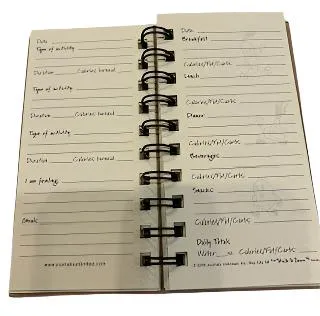 Date
Type of activity
Duration Calories burned
Type of activity
Duration Calories burned
Type of activity
Duration Calories burned
I am feeling:
Goals:
Date
Breakfast
Calories/Fat/Carbs
Lunch
Calories/Fat/Carbs
Dinner
Calories/Fat/Carbs
Beverages
Calories/Fat/Carbs
Snacks
Calories/Fat/Carbs
Daily Totals
Water Calories/Fat/Carbs